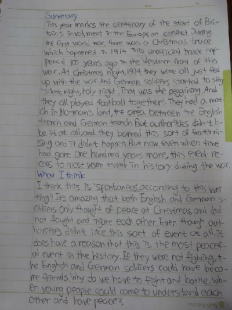 Summary
This year marks the centenary of the start of Bri-
tain's involvement in the European conflict During
the first world war, there was a Christmas truce
which happened in 1914 This unofficial truce hap-
pened 100 years ago in the Western front of this
war. At Christmas night, 1914 they were all just fed
up with the war and German soldiers started to sing
silent night, holy night. That was the beginning. And
they all played football together. They had a mat-
ch in No-man's land, the area between the English
trench and German trench But authorities didn't li-
ke it at all and they banned this sort of
ing and it didn't happen But now when time
had gone one hundred years more, this
to most event in history during the war.
What I think
I think this is spontaneous according to this wri-
ting. It's amazing that both English and German s-
oldiers only thought of peace at Christmas and did
not fight and hate each other even though aut-
horities didn't like this sort of event at all. It
does have a reason that this is the most peace-
ful event in the history. If they were not fighting, t-
he English and German soldiers could have beco-
me friends. Why do we have to fight and battle wh-
en young people could come to understand each
other and have peace?